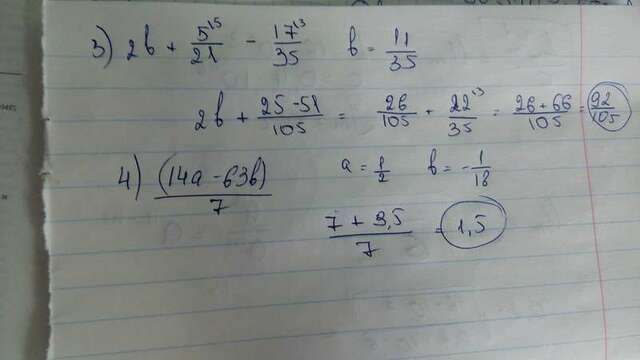 3) 2b + 5¹⁵/21 - 17¹³/35 b = 11/35
2b + 25-51/105 = 26/105 + 22¹³/35 = 26+66/105 = 92/105
4) (14a-63b)/7 a = 1/2 b = -1/18
7+3,5/7 = 1,5